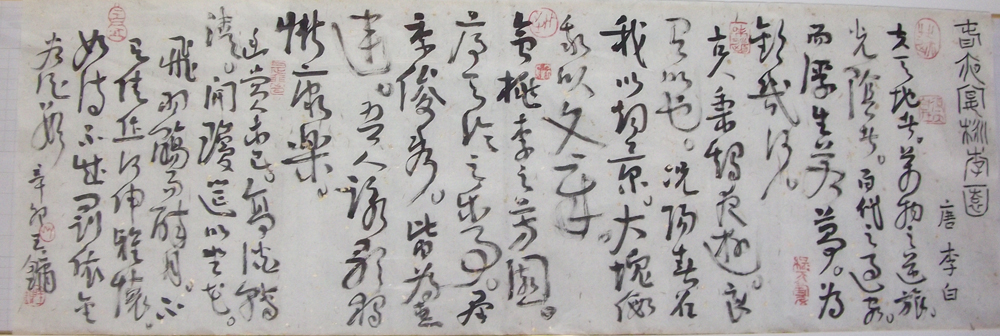 春夜宴桃李園
唐 李白
夫天地者。萬物之逆旅。
光陰者。百代之過客。
而浮生若夢。為
歡幾何。
古人秉燭夜遊。良
有以也。況陽春召
我以煙景。大塊假
我以文章
會桃李之芳園。
序天倫之樂事。群
季俊秀。皆為惠
連。吾人詠歌獨
慚康樂。
幽賞未已。高談轉
清。開瓊筵以坐花。
飛羽觴而醉月。不
有佳作何伸雅懷。
如詩不成罰依金
谷酒數 辛卯王鏞